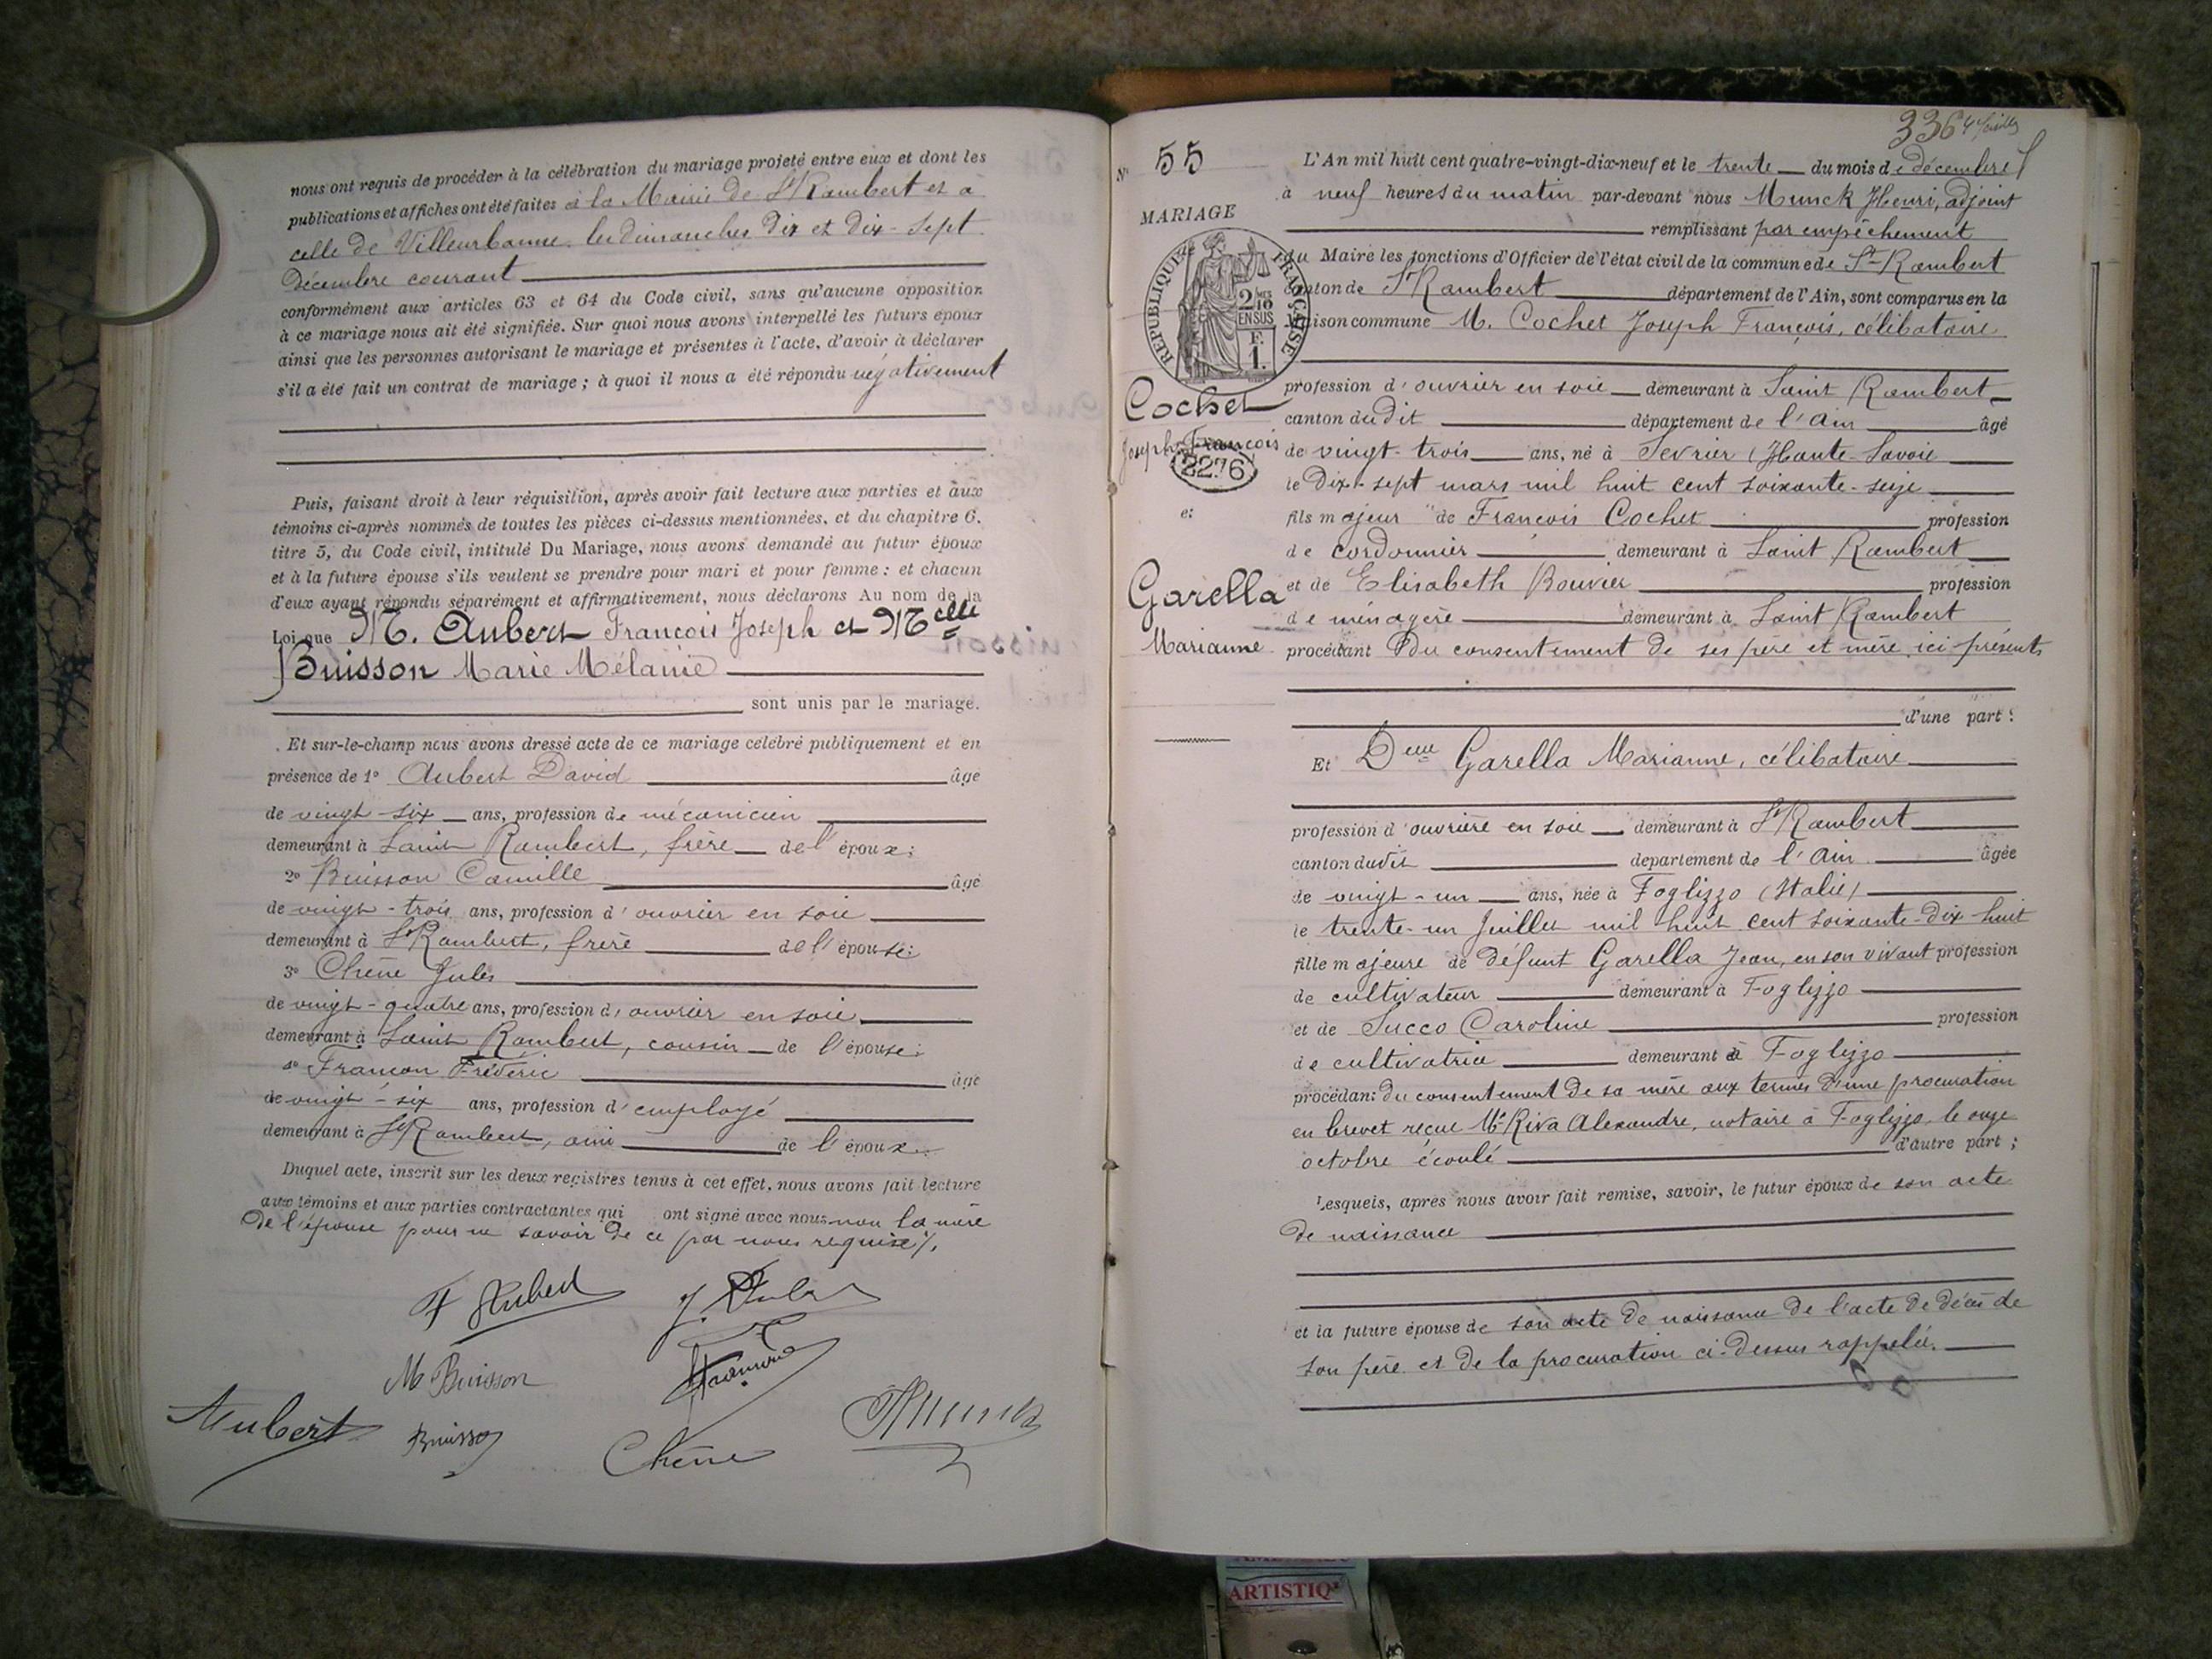 nous ont requis de procéder à la célébration du mariage projeté entre eux et dont les
publications et affiches ont été faites à la Mairie de St Rambert et à
celle de Villeurbanne les dimanches dix et dix-sept
décembre courant
conformément aux articles 63 et 64 du Code civil, sans qu'aucune opposition
à ce mariage nous ait été signifiée. Sur quoi nous avons interpellé les futurs époux
ainsi que les personnes autorisant le mariage et présentes à l'acte, d'avoir à déclarer
s'il a été fait un contrat de mariage ; à quoi il nous a été répondu négativement
Puis, faisant droit à leur réquisition, après avoir fait lecture aux parties et aux
témoins ci-après nommés de toutes les pièces ci-dessus mentionnées, et du chapitre 6.
titre 5, du Code civil, intitulé Du Mariage, nous avons demandé au futur époux
et à la future épouse s'ils veulent se prendre pour mari et pour femme : et chacun
d'eux ayant répondu séparément et affirmativement, nous déclarons Au nom de la
Loi que M. Aubert François Joseph et Melle
Buisson Marie Mélanie
sont unis par le mariage.
Et sur-le-champ nous avons dressé acte de ce mariage célébré publiquement et en
présence de 1° Aubert David âgé
de vingt-six ans, profession de mécanicien
demeurant à Saint Rambert, frère de l'époux;
2° Buisson Camille âgé
de vingt-trois ans, profession d'ouvrier en soie
demeurant à St Rambert, frère de l'épouse;
3° Chêne Jules
de vingt-quatre ans, profession d'ouvrier en soie
demeurant à Saint Rambert, cousin de l'épouse;
4° Françon Frédéric âgé
de vingt-six ans, profession d'employé
demeurant à St Rambert, ami de l'époux
Duquel acte, inscrit sur les deux registres tenus à cet effet, nous avons fait lecture
aux témoins et aux parties contractantes qui ont signé avec nous non la mère
de l'épouse pour ne savoir de ce par nous requise ./.
F Aubert
M Buisson
Aubert
Buisson
Chêne
Munck
336
N° 55
MARIAGE
RÉPUBLIQUE FRANÇAISE
2/10MES
EN SUS
F.
1.
Cochet
Joseph François
2276
et
Garella
Marianne
L'An mil huit cent quatre-vingt-dix-neuf et le trente du mois de décembre
à neuf heures du matin par-devant nous Munck Henri, adjoint
remplissant par empêchement
du Maire les fonctions d'Officier de l'état civil de la commune de St-Rambert
canton de St Rambert département de l'Ain, sont comparus en la
maison commune M. Cochet Joseph François, célibataire
profession d'ouvrier en soie demeurant à Saint Rambert
canton dudit département de l'Ain âgé
de vingt-trois ans, né à Sevrier (Haute-Savoie
le dix-sept mars mil huit cent soixante-seize
fils majeur de François Cochet profession
de cordonnier demeurant à Saint Rambert
et de Elisabeth Bouvier profession
de ménagère demeurant à Saint Rambert
procédant du consentement de ses père et mère ici présents
d'une part :
Et Delle Garella Marianne, célibataire
profession d'ouvrière en soie demeurant à St Rambert
canton dudit département de l'Ain âgée
de vingt-un ans, née à Foglizzo (Italie)
le trente-un Juillet mil huit cent soixante-dix-huit
fille majeure de défunt Garella Jean, en son vivant profession
de cultivateur demeurant à Foglizzo
et de Succo Caroline profession
de cultivatrice demeurant à Foglizzo
procédant du consentement de sa mère aux termes d'une procuration
en brevet reçue Me Riva Alexandre, notaire à Foglizzo, le onze
octobre écoulé d'autre part ;
Lesquels, après nous avoir fait remise, savoir, le futur époux de son acte
de naissance
et la future épouse de son acte de naissance de l'acte de décès de
son père et de la procuration ci-dessus rappelée.
ARTISTIQ